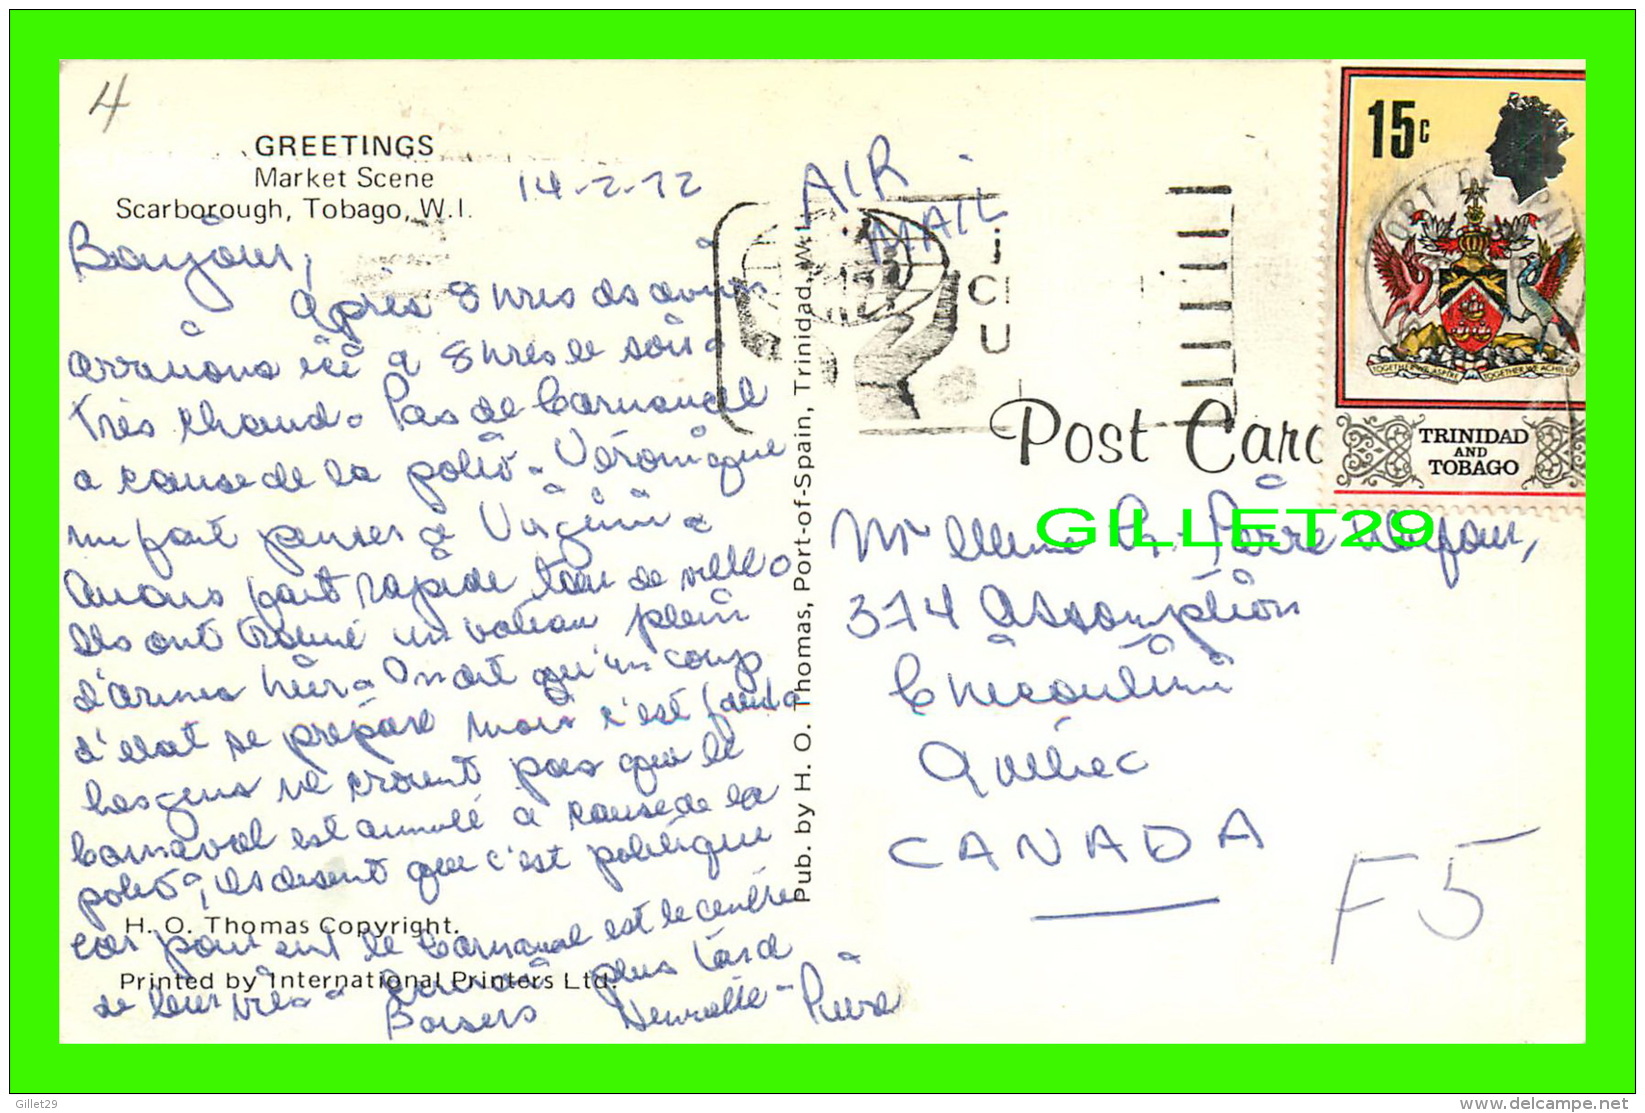 4
GREETINGS
Market Scene
Scarborough, Tobago, W.I.
14-2-72
AIR
MAIL
15c
TOGETHER WE ASPIRE TOGETHER WE ACHIEVE
TRINIDAD
AND
TOBAGO
Post Card
Bonjour,
Après 8 hres d'avion
arrivons ici à 8 hres le soir
très chaud. Pas de Carnaval
a cause de la polio. Véronique
me fait penser à Virginie
Avons fait rapide tour de ville
Ils ont trouvé un bateau plein
d'armes hier. On dit qu'un coup
d'état se prépare mais c'est
les gens ne croient pas que le
Carnaval est annulé à cause de la
polio, ils disent que c'est politique
car pour eux le Carnaval est le centre
de leur vie. plus tard
Baisers Henriette - Pierre
H. O. Thomas Copyright.
Printed by International Printers Ltd.
Pub. by H. O. Thomas, Port-of-Spain, Trinidad, W.I.
GILLET29
Mr Mme Pierre
374 Assomption
Chicoutimi
Québec
CANADA
F5
Gillet29
www.delcampe.net